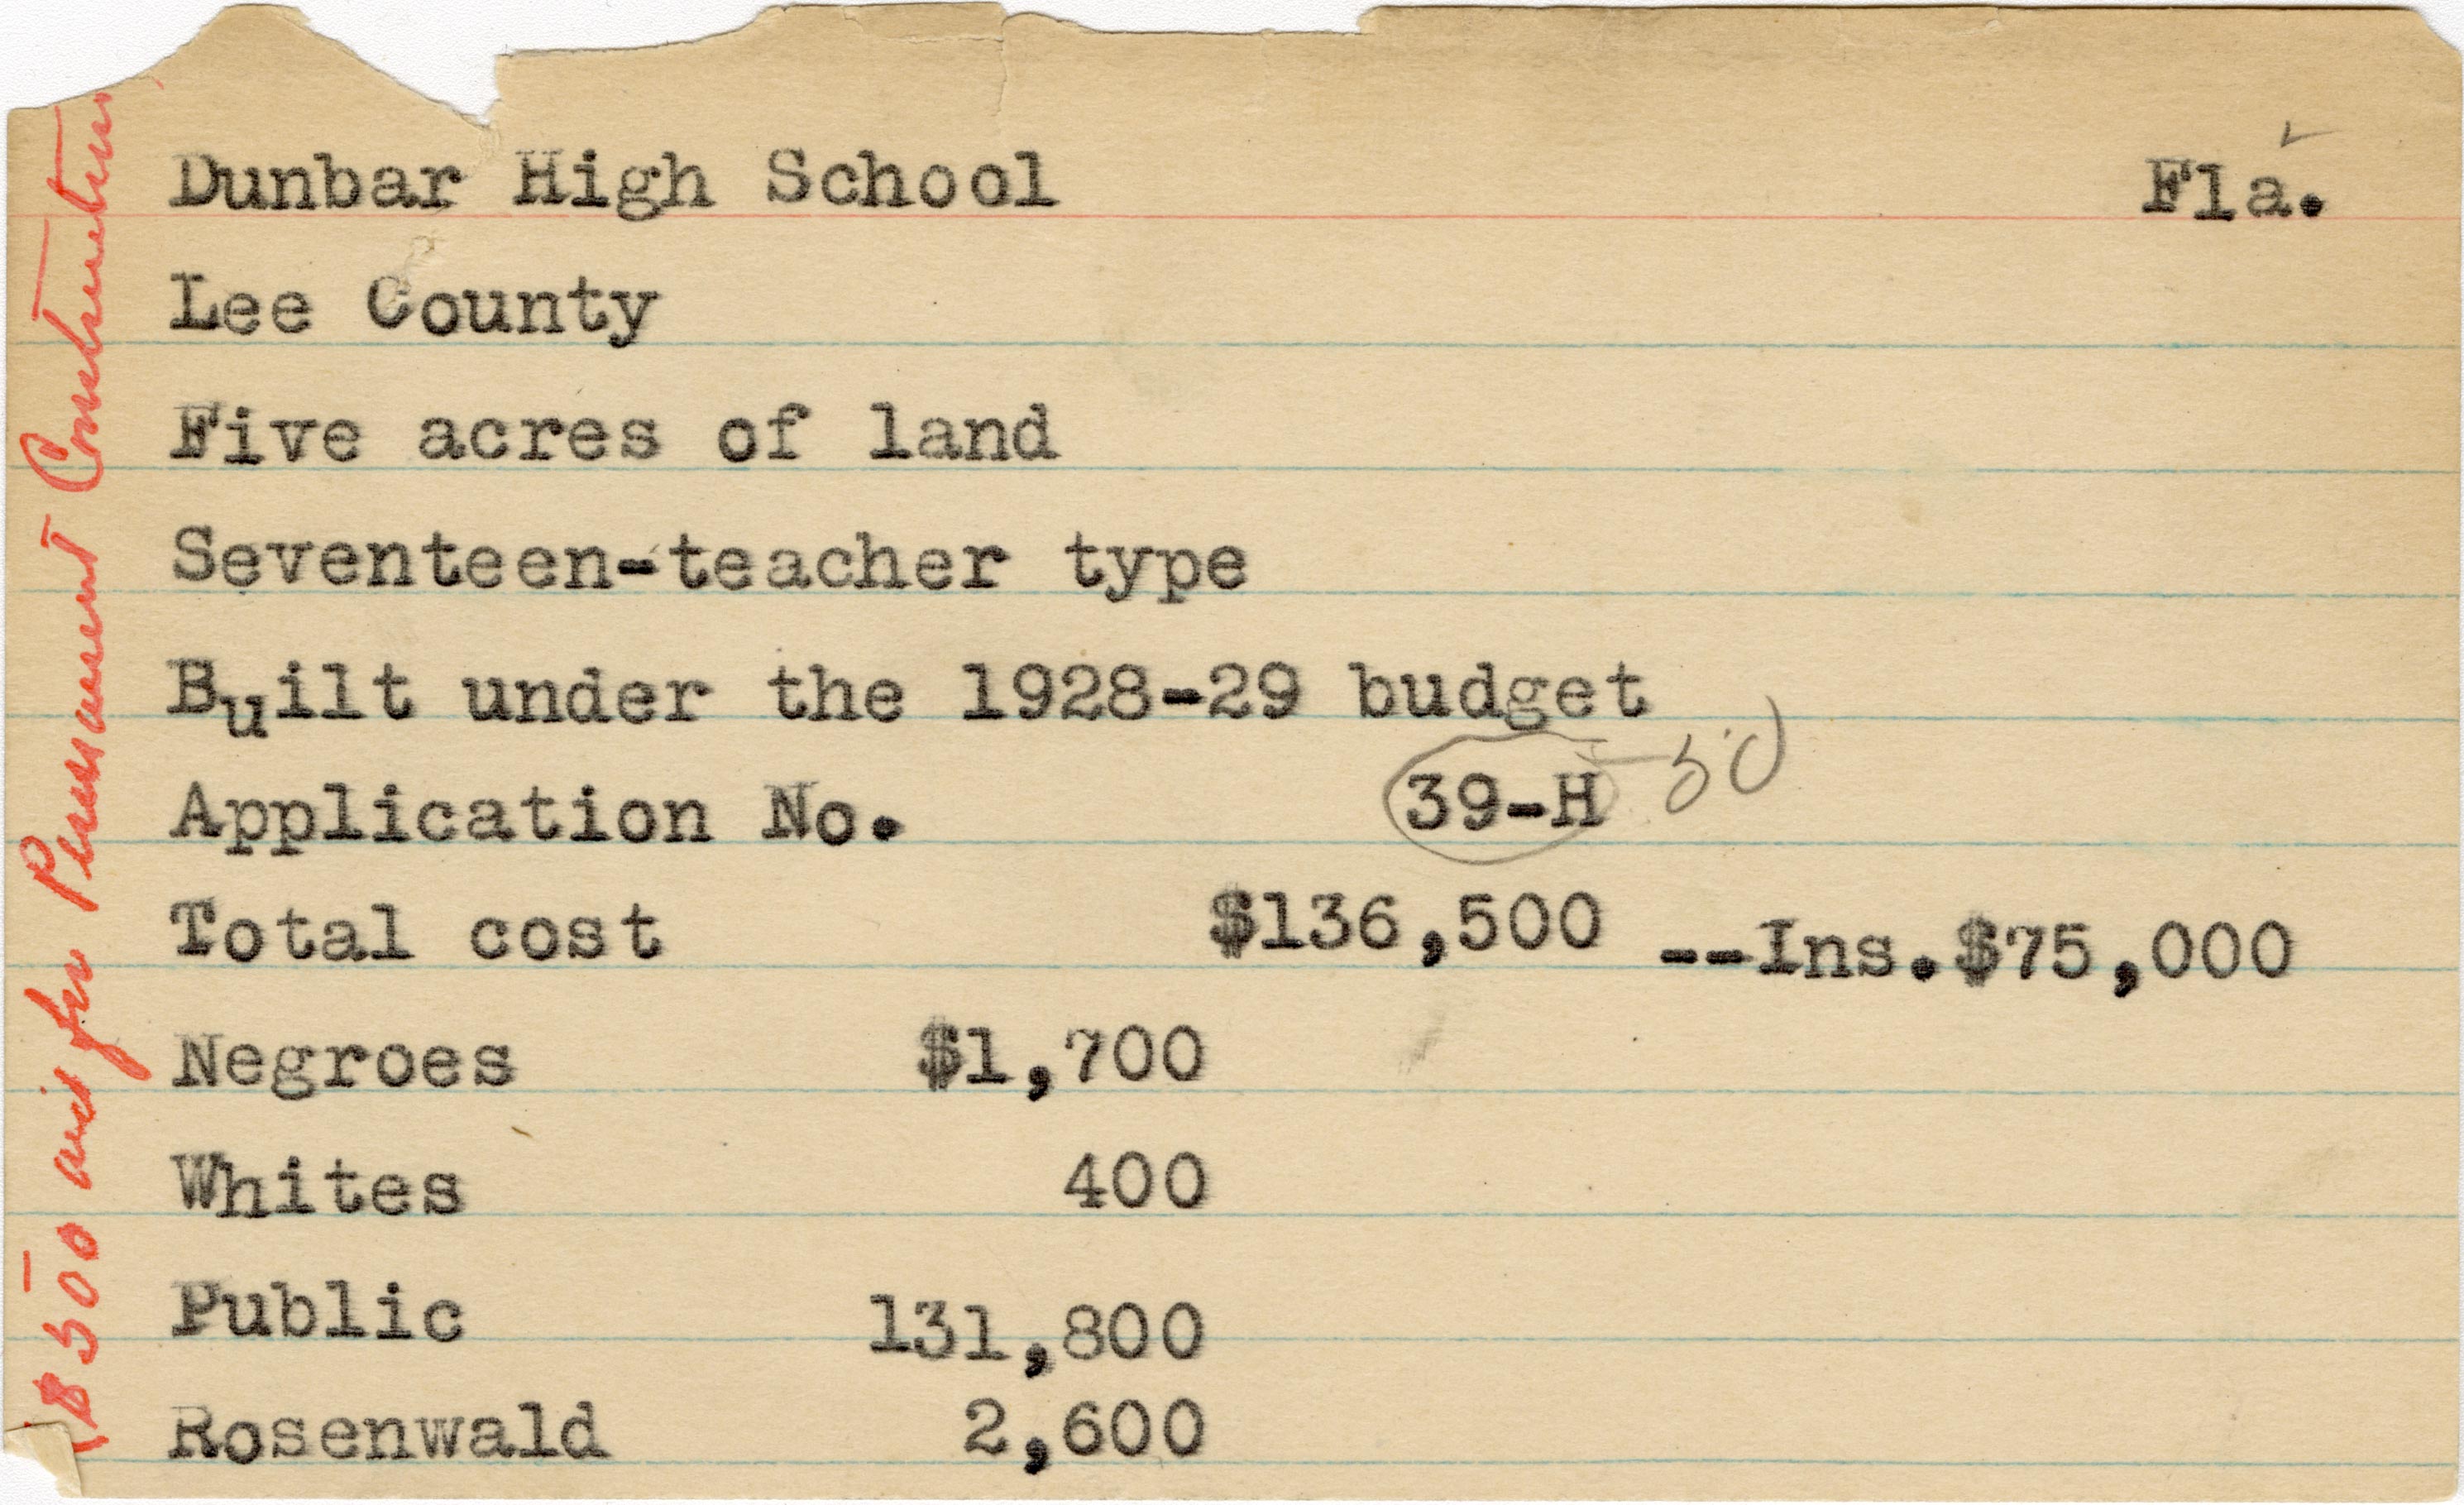 Dunbar High School Fla.
Lee County
Five acres of land
Seventeen-teacher type
Built under the 1928-29 budget
Application No. 39-H -50
Total cost $136,500 --Ins.$75,000
Negroes $1,700
Whites 400
Public 131,800
Rosenwald 2,600
($500 aid for Permanent Construction)